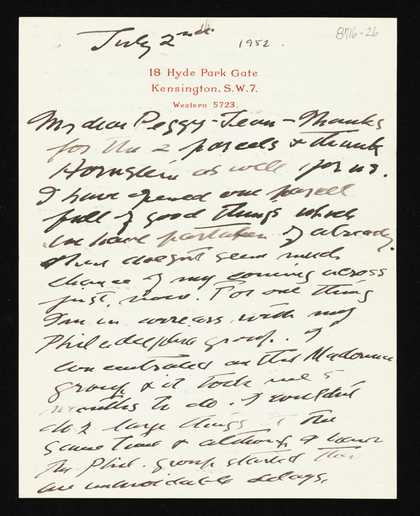 July 2nd. 1952.
8716-26
18 Hyde Park Gate
Kensington, S.W.7.
Western 5723.
My dear Peggy-Jean – Thanks
for the 2 parcels & thank
Hornstein as well for us.
I have opened one parcel
full of good things which
we have partaken of already.
There doesn't seem much
chance of my coming across
just now. For one thing
I'm in arrears with my
Philadelphia group. I
concentrated on the Madonna
group & it took me 5
months to do. I couldn't
do 2 large things at the
same time & although I have
the Phil. group started there
are unavoidable delays.